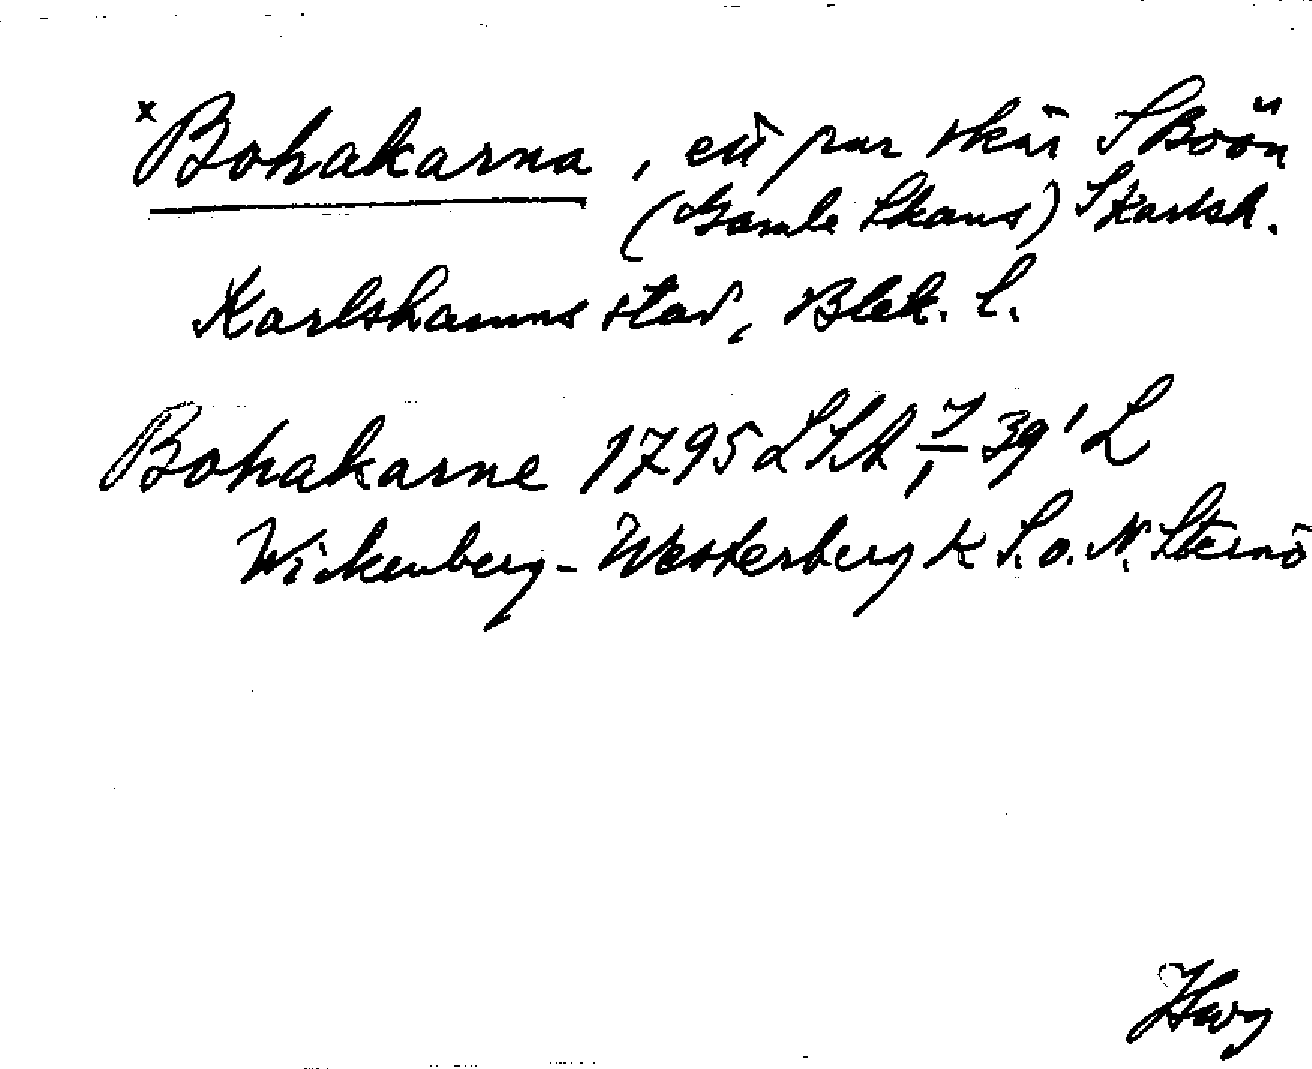 x Bohakarna, ett par skär S Boön
(Gamle Skans) S Karlsh.
Karlshamns stad, Blek. l.
Bohakarne 1795 39' L
Wickenberg-Westerberg K S. o. N. Sternö